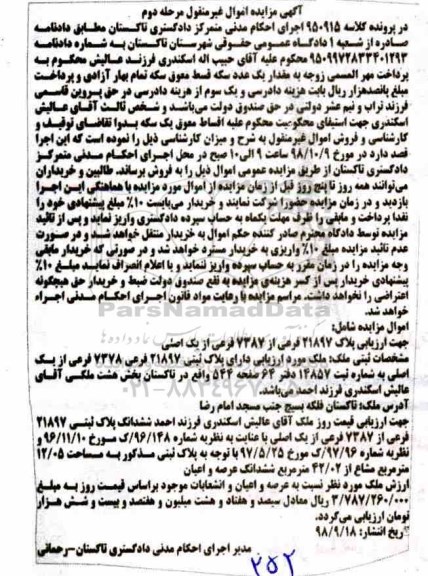 آگهی مزایده اموال غیرمنقول مرحله دوم
در پرونده کلاسه ۹۵۰۹۱۵ اجرای احکام مدنی متمرکز دادگستری تاکستان مطابق دادنامه
صادره از شعبه ۱ دادگاه عمومی حقوقی شهرستان تاکستان به شماره دادنامه
۹۵۰۹۹۷۲۸۳۳۴۰۱۲۹۳ محکوم علیه آقای حبیب اله اسکندری فرزند عالیش محکوم به
پرداخت مهر المسمی زوجه به مقدار یک عدد سکه قسط معوق سکه تمام بهار آزادی و پرداخت
مبلغ پانصدهزار ریال بابت هزینه دادرسی و یک سوم از هزینه دادرسی در حق پروین قاسمی
فرزند تراب و نیم عشر دولتی در حق صندوق دولت می‌باشد و شخص ثالث آقای عالیش
اسکندری جهت استیفای محکومیت محکوم علیه اقساط معوق یک سکه بدوا تقاضای توقیف و
کارشناسی و فروش اموال غیرمنقول به شرح و میزان کارشناسی ذیل را نموده است که این اجرا
قصد دارد در مورخ ۹۸/۱۰/۹ ساعت ۹ الی ۱۰ صبح در محل اجرای احکام مدنی متمرکز
دادگستری تاکستان از طریق مزایده عمومی اموال ذیل را به فروش برساند. طالبین و خریداران
می‌توانند همه روز تا پنج روز قبل از زمان مزایده از اموال مورد مزایده با هماهنگی این اجرا
بازدید و در زمان مزایده حضورا شرکت نمایند و خریدار می‌بایست ۱۰٪ مبلغ پیشنهادی خود را
نقدا پرداخت و مابقی را ظرف مهلت یکماه به حساب سپرده دادگستری واریز نماید و پس از تائید
مزایده توسط دادگاه محترم صادر کننده حکم اموال به خریدار منتقل خواهد شد و در صورت
عدم تائید مزایده مبلغ ۱۰٪ واریزی به خریدار مسترد خواهد شد و در صورتی که خریدار مابقی
وجه مزایده را در زمان مقرر به حساب سپرده واریز ننماید و یا اعلام انصراف نماید مبلغ ۱۰٪
پیشنهادی خریدار پس از کسر هزینه‌ی مزایده به نفع صندوق دولت ضبط و خریدار حق هیچگونه
اعتراضی را نخواهد داشت. مراسم مزایده با رعایت مواد قانون اجرای احکام مدنی اجراء
خواهد شد.
اموال مزایده شامل:
جهت ارزیابی پلاک ۲۱۸۹۷ فرعی از ۷۳۸۷ فرعی از یک اصلی
مشخصات ثبتی ملک: ملک مورد ارزیابی دارای پلاک ثبتی ۲۱۸۹۷ فرعی از ۷۳۷۸ فرعی از یک
اصلی به شماره ثبت ۱۴۸۵۷ دفتر ۶۴ صفحه ۵۳۴ واقع در تاکستان بخش هشت ملکی آقای
عالیش اسکندری فرزند احمد می‌باشد.
آدرس ملک: تاکستان فلکه بسیج جنب مسجد امام رضا
جهت ارزیابی قیمت روز ملک آقای عالیش اسکندری فرزند احمد ششدانگ پلاک ثبتی ۲۱۸۹۷
فرعی از ۷۳۸۷ فرعی از یک اصلی با عنایت به نظریه شماره ۹۶/۱۴۸/ک مورخ ۹۶/۱۱/۱۰ و
نظریه شماره ۹۷/۹۶/ک مورخ ۹۷/۵/۲۵ با توجه به پلاک ثبتی مذکور به مساحت ۱۲/۰۵
مترمربع مشاع از ۴۲/۰۷ مترمربع ششدانگ عرصه و اعیان
ارزش ملک مورد نظر نسبت به عرصه و اعیان و انشعابات موجود براساس قیمت روز به مبلغ
۳/۷۸۷/۲۶۰/۰۰۰ ریال معادل سیصد و هفتاد و هشت میلیون و هفتصد و بیست و شش هزار
تومان ارزیابی می‌گردد.
تاریخ انتشار: ۹۸/۹/۱۸
مدیر اجرای احکام مدنی دادگستری تاکستان-رحمانی
۲۵۲
ParsNamadData